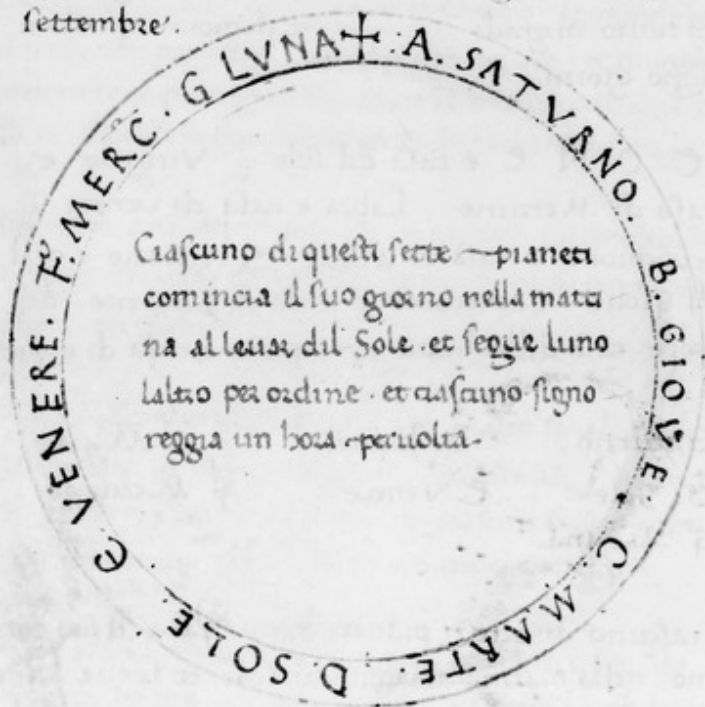 settembre.
✝ A. SATVRNO. B. GIOVE. C. MARTE. D. SOLE. E VENERE. F. MERC. G LVNA
Ciascuno di questi sette pianeti
comincia il suo giorno nella mati
na al leuar dil Sole. et segue luno
laltro per ordine. et ciascuno signo
reggia un hora per uolta.